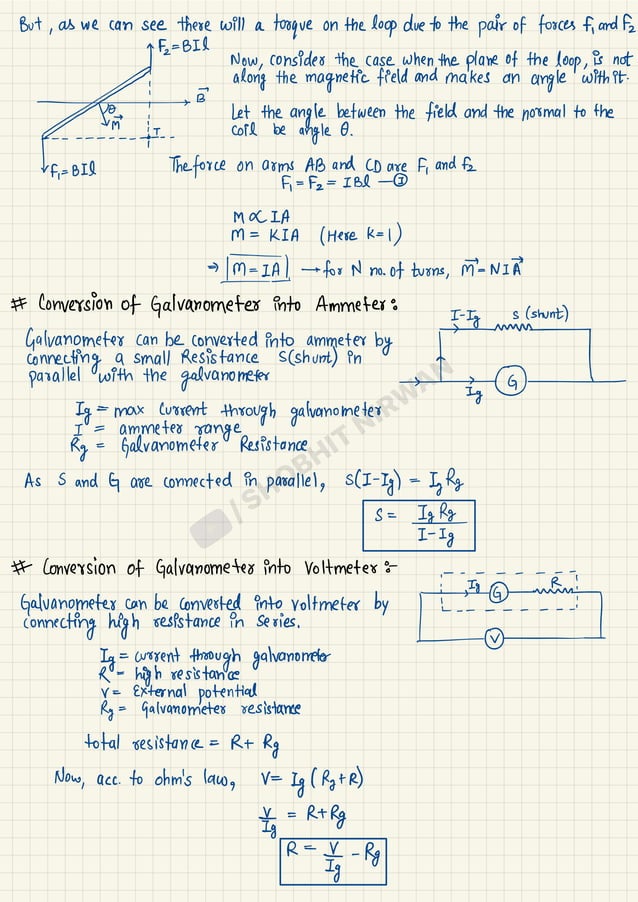 But, as we can see there will a torque on the loop due to the pair of forces f₁ and F₂
F₂=BIl
Now, consider the case when the plane of the loop, is not
along the magnetic field and makes an angle with it.
B⃗
θ
M⃗
I
Let the angle between the field and the normal to the
coil be angle θ.
F₁=BIl
The force on arms AB and CD are F₁ and f₂
F₁=F₂= IBl —①
M∝IA
M= KIA (Here K=1)
→ |M=IA| → for N no. of turns, M⃗=NIA⃗
# Conversion of Galvanometer into Ammeter:
I-Ig S (shunt)
Galvanometer can be converted into ammeter by
connecting a small Resistance S(shunt) in
parallel with the galvanometer
G
Ig
Ig = max current through galvanometer
I = ammeter range
Rg = Galvanometer Resistance
As S and G are connected in parallel, S(I-Ig) = Ig Rg
S = Ig Rg
I-Ig
/ SHOBHIT NIRWAN
# Conversion of Galvanometer into Voltmeter:-
Ig G R
V
Galvanometer can be converted into voltmeter by
connecting high resistance in series.
Ig = current through galvanometer
R = high resistance
V = External potential
Rg = Galvanometer resistance
total resistance = R+ Rg
Now, acc. to ohm's law, V= Ig (Rg+R)
V/Ig = R+Rg
R = V/Ig - Rg